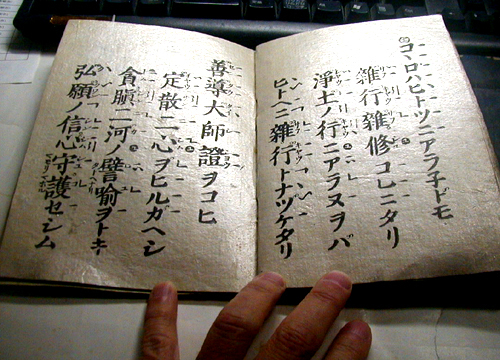 コヽロハヒトツニアラ子ドモ
雜行雜修コレニタリ
淨土ノ行ニアラヌヲバ
ヒトヘニ雜行トナヅケタリ
善導大師證ヲコヒ
定散二心ヲヒルガヘシ
貪瞋二河ノ譬喩ヲトキ
弘願ノ信心守護セシム